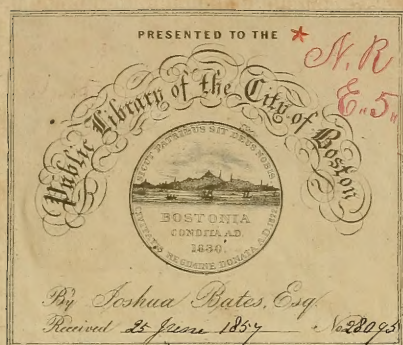 PRESENTED TO THE *
N.R
E.5.
Public Library of the City of Boston
SICUT PATRIBUS SIT DEUS NOBIS
BOSTONIA
CONDITA A.D.
1630.
CIVITATIS REGIMINE DONATA A.D. 1822
By Joshua Bates, Esq
Received 25 June 1857 No 28095